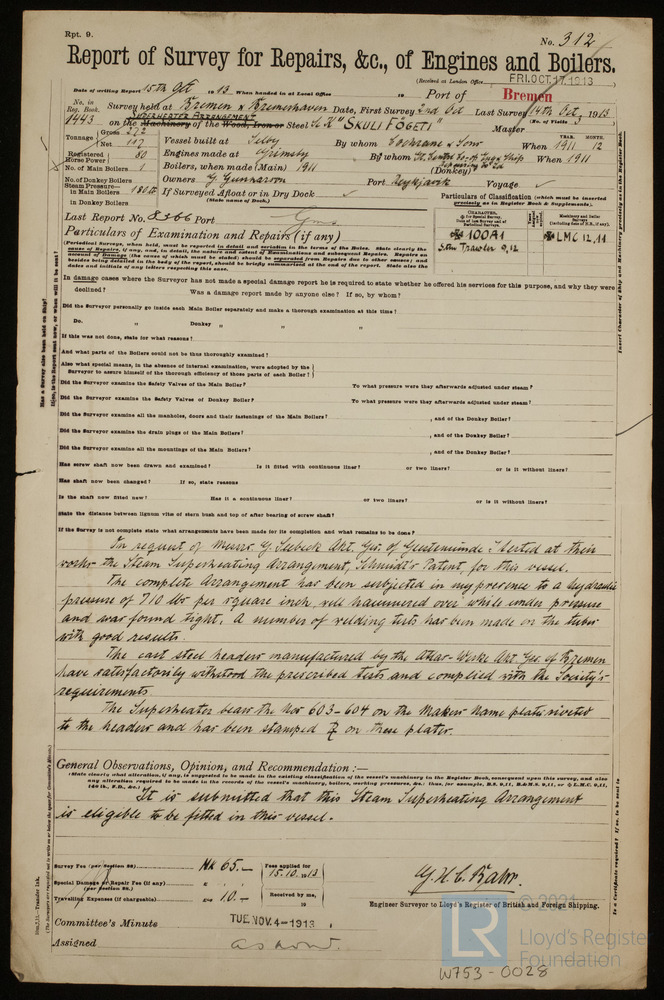 Rpt. 9.
No. 312
Report of Survey for Repairs, &c., of Engines and Boilers.
(Received at London Office FRI. OCT. 17 1913)
Date of writing Report 15th Oct 1913 When handed in at Local Office 19 Port of Bremen
No. in Reg. Book. 1443 Survey held at Bremen & Bremerhaven Date, First Survey 2nd Oct Last Survey 14th Oct, 1913
SUPERHEATER ARRANGEMENT
(No. of Visits )
on the Machinery of the Wood, Iron or Steel "SKULI FÓGETI" Master
Tonnage Gross 272
Net 107
Vessel built at Selby By whom Cochrane & Sons When 1911 12
YEAR. MONTH.
Registered Horse Power 80 Engines made at Grimsby By whom Gt. Central Co-op Engg & Ship Repairing Co Ld When 1911
No. of Main Boilers 1 Boilers, when made (Main) 1911 (Donkey)
No. of Donkey Boilers Owners Port Reykjavik Voyage
Steam Pressure in Main Boilers 180 lb If Surveyed Afloat or in Dry Dock
(State name of Dock.)
in Donkey Boilers
Particulars of Classification (which must be inserted precisely as in Register Book & Supplements).
Last Report No. Port
CHARACTER,
Machinery and Boiler Surveys
✠ 100A1
Stm Trawler 9,12
✠ LMC 12,11
Particulars of Examination and Repairs (if any)
(Periodical Surveys, when held, must be reported in detail and seriatim in the terms of the Rules. State clearly the
cause of Repairs, if any, and, in detail, the nature and extent of Examinations and subsequent Repairs. Repairs on
account of Damage (the cause of which must be stated) should be separated from Repairs due to other causes; and
besides being detailed in the body of the report, should be briefly summarised at the end of the report. State also the
dates and initials of any letters respecting this case.
In damage cases where the Surveyor has not made a special damage report he is required to state whether he offered his services for this purpose, and why they were
declined? Was a damage report made by anyone else? If so, by whom?
Did the Surveyor personally go inside each Main Boiler separately and make a thorough examination at this time?
Do. " Donkey " " "
If this was not done, state for what reasons?
And what parts of the Boilers could not be thus thoroughly examined?
Also what special means, in the absence of internal examination, were adopted by the
Surveyor to assure himself of the thorough efficiency of those parts of each Boiler?
Did the Surveyor examine the Safety Valves of the Main Boiler? To what pressure were they afterwards adjusted under steam?
Did the Surveyor examine the Safety Valves of Donkey Boiler? To what pressure were they afterwards adjusted under steam?
Did the Surveyor examine all the manholes, doors and their fastenings of the Main Boilers? , and of the Donkey Boiler?
Did the Surveyor examine the drain plugs of the Main Boilers? , and of the Donkey Boiler?
Did the Surveyor examine all the mountings of the Main Boilers? , and of the Donkey Boiler?
Has screw shaft now been drawn and examined? Is it fitted with continuous liner? or two liners? or is it without liners?
Has shaft now been changed? If so, state reasons
Is the shaft now fitted new? Has it a continuous liner? or two liners? or is it without liners?
State the distance between lignum vitæ of stern bush and top of after bearing of screw shaft?
If the Survey is not complete state what arrangements have been made for its completion and what remains to be done?
In request of Messrs. G. Seebeck Akt. Ges. of Geestemünde I tested at their
works the Steam Superheating Arrangement, Schmidt's Patent, for this vessel.
The complete Arrangement has been subjected in my presence to a hydraulic
pressure of 710 lbs per square inch, well hammered over while under pressure
and was found tight. A number of welding tests has been made on the tubes
with good results.
The cast steel headers manufactured by the Atlas-Werke Akt. Ges. of Bremen
have satisfactorily withstood the prescribed tests and complied with the Society's
requirements
The Superheater bears the Nos 603-604 on the Makers Name plates riveted
to the headers and has been stamped on these plates.
General Observations, Opinion, and Recommendation:—
(State clearly what alteration, if any, is suggested to be made in the existing classification of the vessel's machinery in the Register Book, consequent upon this survey, and also
any alteration required to be made in the records of the vessel's machinery, boilers, working pressures, &c.: thus, for example, B.S. 9,11, B.&M.S. 9,11, or ✠ L.M.C. 9,11,
140 lb., F.D., &c.)
It is submitted that this Steam Superheating Arrangement
is eligible to be fitted in this vessel.
Survey Fee (per Section 28) MK 65.— Fees applied for 15.10.1913
Special Damage or Repair Fee (if any) (per Section 28.) £ : : Received by me,
Travelling Expenses (if chargeable) 10.— 19
Engineer Surveyor to Lloyd's Register of British and Foreign Shipping.
Committee's Minute TUE. NOV. 4-1913
Assigned
© 2021
LR
Lloyd's Register
Foundation
W753-0028